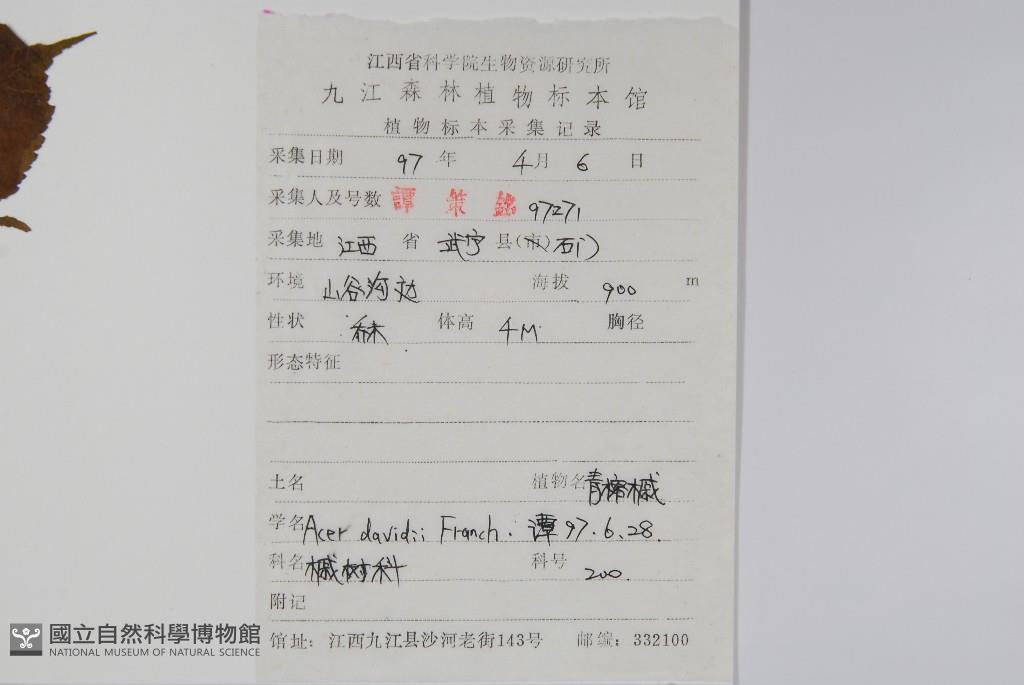 江西省科学院生物资源研究所
九江森林植物标本馆
植物标本采集记录
采集日期 97 年 4 月 6 日
采集人及号数 譚策銘 97271
采集地 江西 省 武宁 县(市) 石门
环境 山谷沟边 海拔 900 m
性状 乔木 体高 4M 胸径
形态特征
土名 植物名 青榨槭
学名 Acer davidii Franch. 谭 97.6.28.
科名 槭树科 科号 200.
附记
馆址: 江西九江县沙河老街143号 邮编: 332100
國立自然科學博物館
NATIONAL MUSEUM OF NATURAL SCIENCE